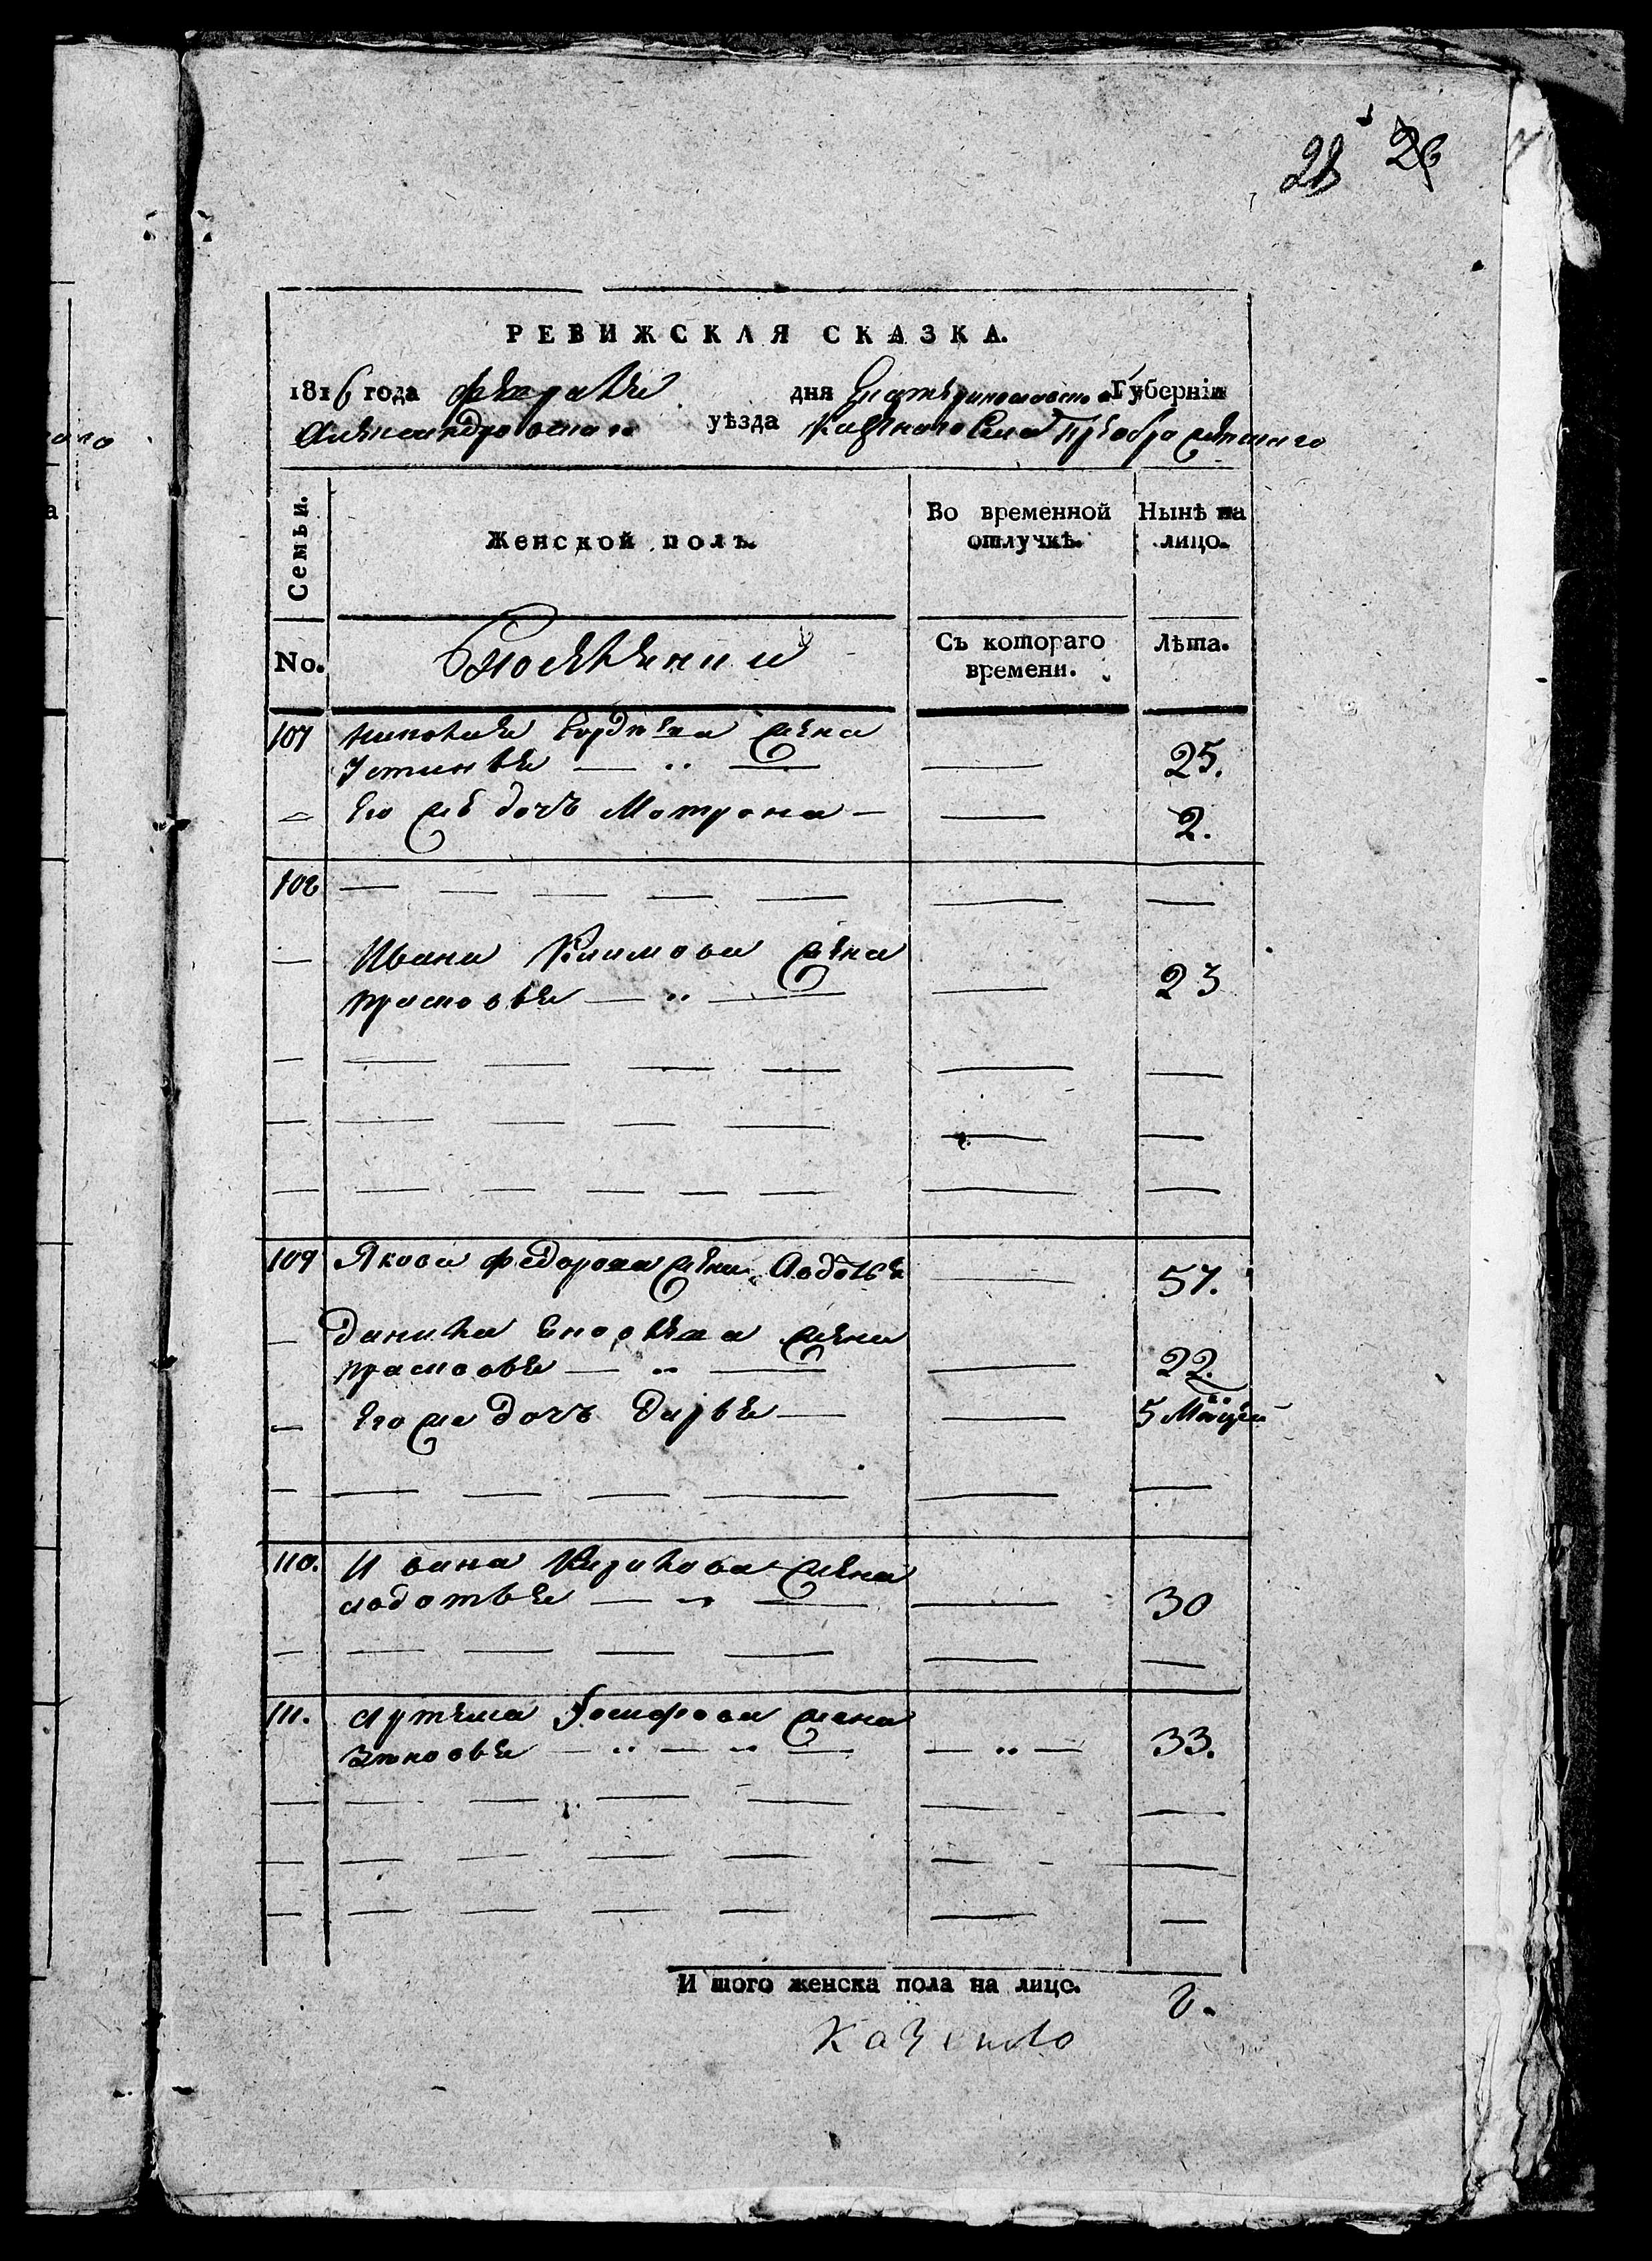 28 26
РЕВИЖСКАЯ СКАЗКА.
1816 года февраля дня Екатеринославской Губерніи
Александровского уѣзда Казенного Села Преображенского
Семьи.
Женской полъ.
Во временной отлучкѣ.
Нынѣ на лицо.
No.
Съ котораго времени.
Лѣта.
107 Гордѣева жена
Устинья — " — — 25.
— Его же дочь Матрона — — 2.
108 — — — — — — —
— Ивана Климова жена
Прасковья — " — — 23
— — — — — — —
— — — — — — —
— — — — — — — —
109 Якова Федорова жена Авдотья — 57.
— Данила жена
Прасковья — " — — 22.
— Его же дочь Дарья — — 5 Мѣсяцей
— — — — — — —
110. Ивана Кирилова жена
Авдотья — " — — 30
— — — — — — —
111. Артема Иосифова жена
Зиновья — " — " — — " — 33.
— — — — — — —
— — — — — — —
— — — — — — —
И того женска пола на лицо. 8.